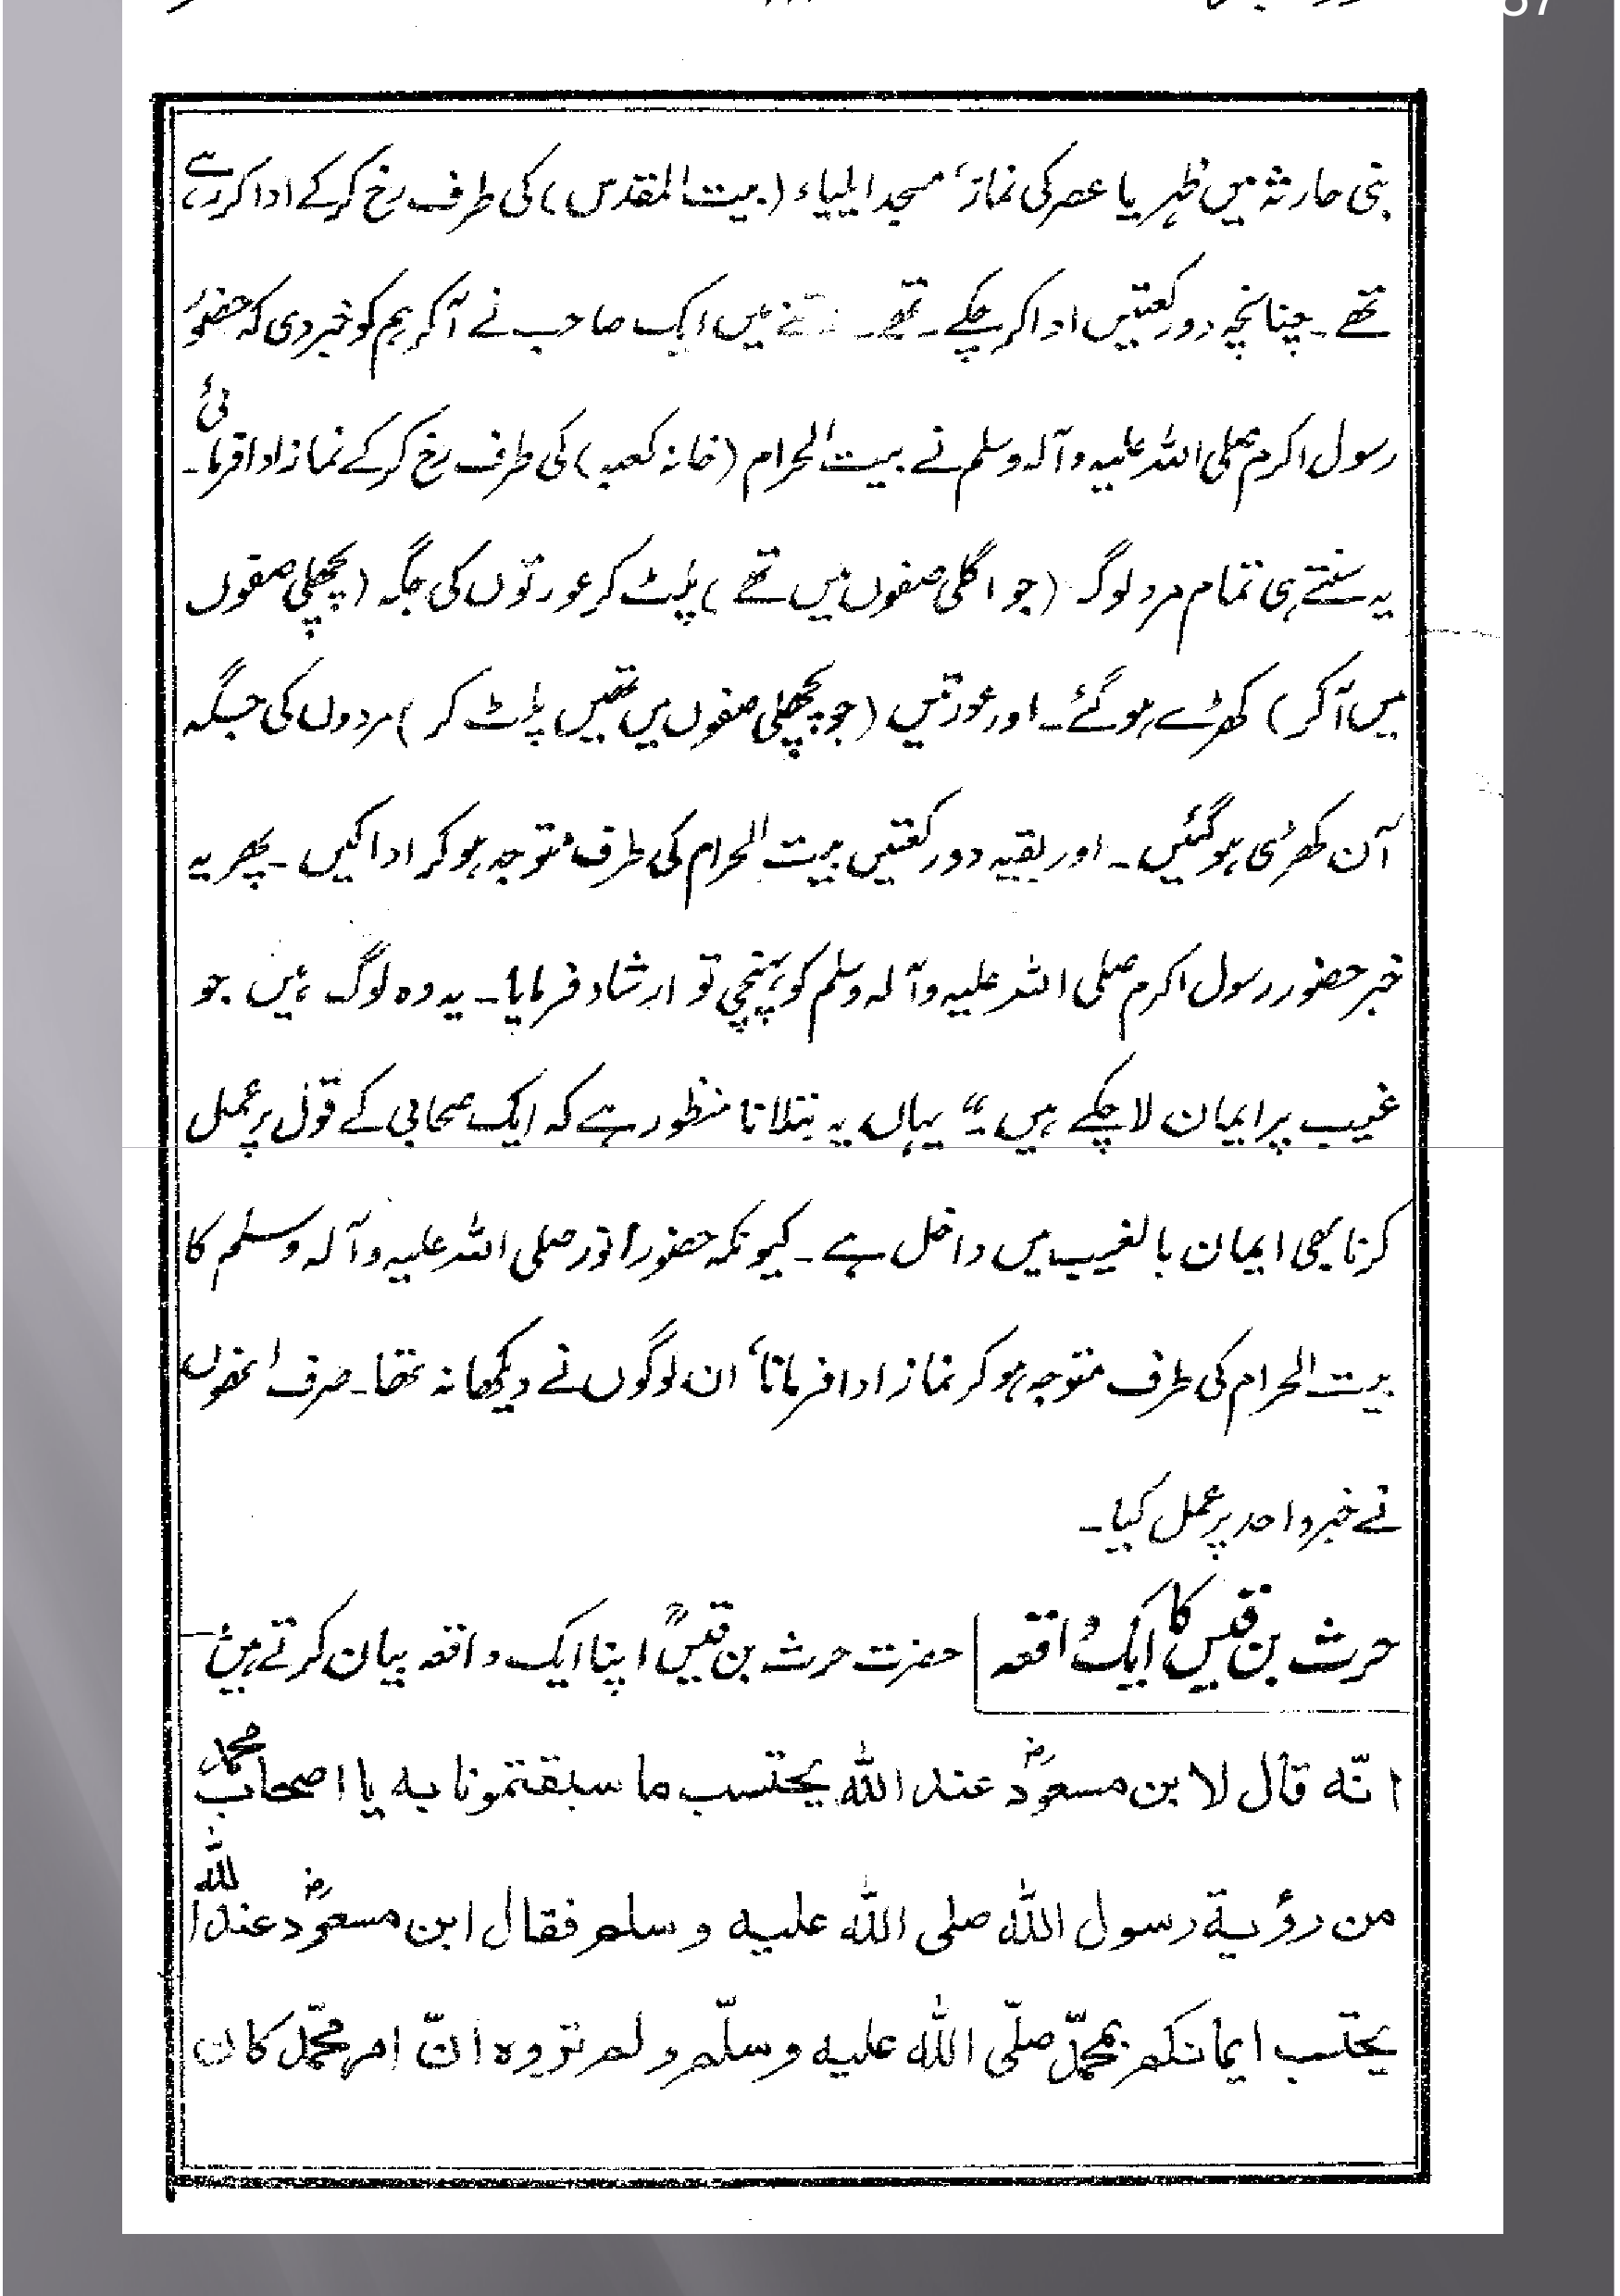 بنی حارثہ میں ظہر یا عصر کی نماز، مسجد ایلیاء (بیت المقدس) کی طرف رخ کرکے ادا کررہے
تھے۔ چنانچہ دو رکعتیں ادا کرچکے۔ تھے۔ اتنے میں ایک صاحب نے آکر ہم کو خبر دی کہ حضورؐ
رسول اکرم صلی اللہ علیہ وآلہ وسلم نے بیت الحرام (خانہ کعبہ) کی طرف رخ کرکے نماز ادا فرمائی۔
یہ سنتے ہی تمام مرد لوگ (جو اگلی صفوں میں تھے) پلٹ کر عورتوں کی جگہ (پچھلی صفوں
میں آکر) کھڑے ہوگئے۔ اور عورتیں (جو پچھلی صفوں میں تھیں پلٹ کر) مردوں کی جگہ
آن کھڑی ہوگئیں۔ اور بقیہ دو رکعتیں بیت الحرام کی طرف متوجہ ہوکر ادا کیں۔ پھر یہ
خبر حضور رسول اکرم صلی اللہ علیہ وآلہ وسلم کو پہنچی تو ارشاد فرمایا۔ یہ وہ لوگ ہیں جو
غیب پر ایمان لاچکے ہیں۔" یہاں یہ بتلانا منظور ہے کہ ایک صحابی کے قول پر عمل
کرنا بھی ایمان بالغیب میں داخل ہے۔ کیونکہ حضور انور صلی اللہ علیہ وآلہ وسلم کا
بیت الحرام کی طرف متوجہ ہوکر نماز ادا فرمانا، ان لوگوں نے دیکھا نہ تھا۔ صرف انھوں
نے خبر واحد پر عمل کیا۔
حرث بن قیس کا ایک واقعہ | حضرت حرث بن قیسؒ اپنا ایک واقعہ بیان کرتے ہیں
انّہ قال لابن مسعودؓ عند اللہ یحتسب ما سبقتمونا بہ یا اصحاب محمد
من رؤیة رسول اللہ صلی اللہ علیہ وسلم فقال ابن مسعودؓ عند اللہ
یحتسب ایمانکم بمحمّد صلّی اللہ علیہ وسلّم ولم تروہ انّ امر محمّد کان